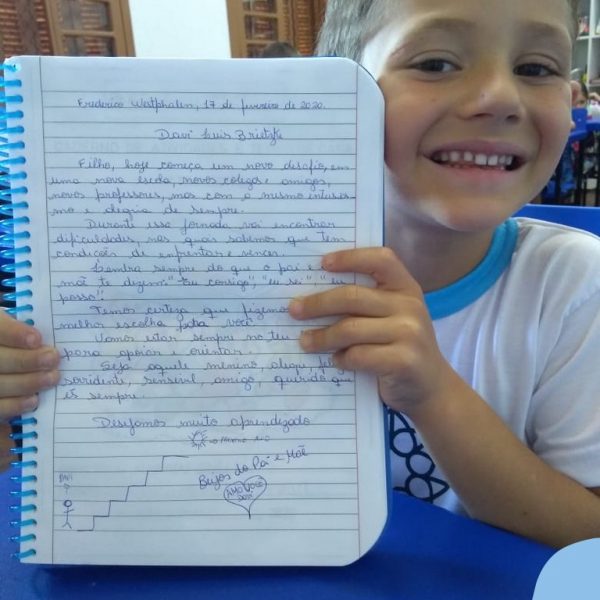 Frederico Westphalen, 17 de fevereiro de 2020.
Davi Luis
Filho, hoje começa um novo desafio, em
uma nova escola, novos colegas e amigos,
novos professores, mas com o mesmo entusias-
mo e alegria de sempre.
Durante essa jornada vai encontrar
dificuldades, nas quais sabemos que tem
condições de enfrentar e vencer.
Lembra sempre do que o pai e a
mãe te dizem: "Eu consigo", "eu sei", "eu
posso".
Temos certeza que fizemos
melhor escolha para você.
Vamos estar sempre no teu
para apoiar e orientar.
Seja aquele menino, alegre,
sorridente, sensível, amigo, querido que
és sempre.
Desejamos muito aprendizado
Beijos do Pai e Mãe
DAVI
AMO VOCÊ